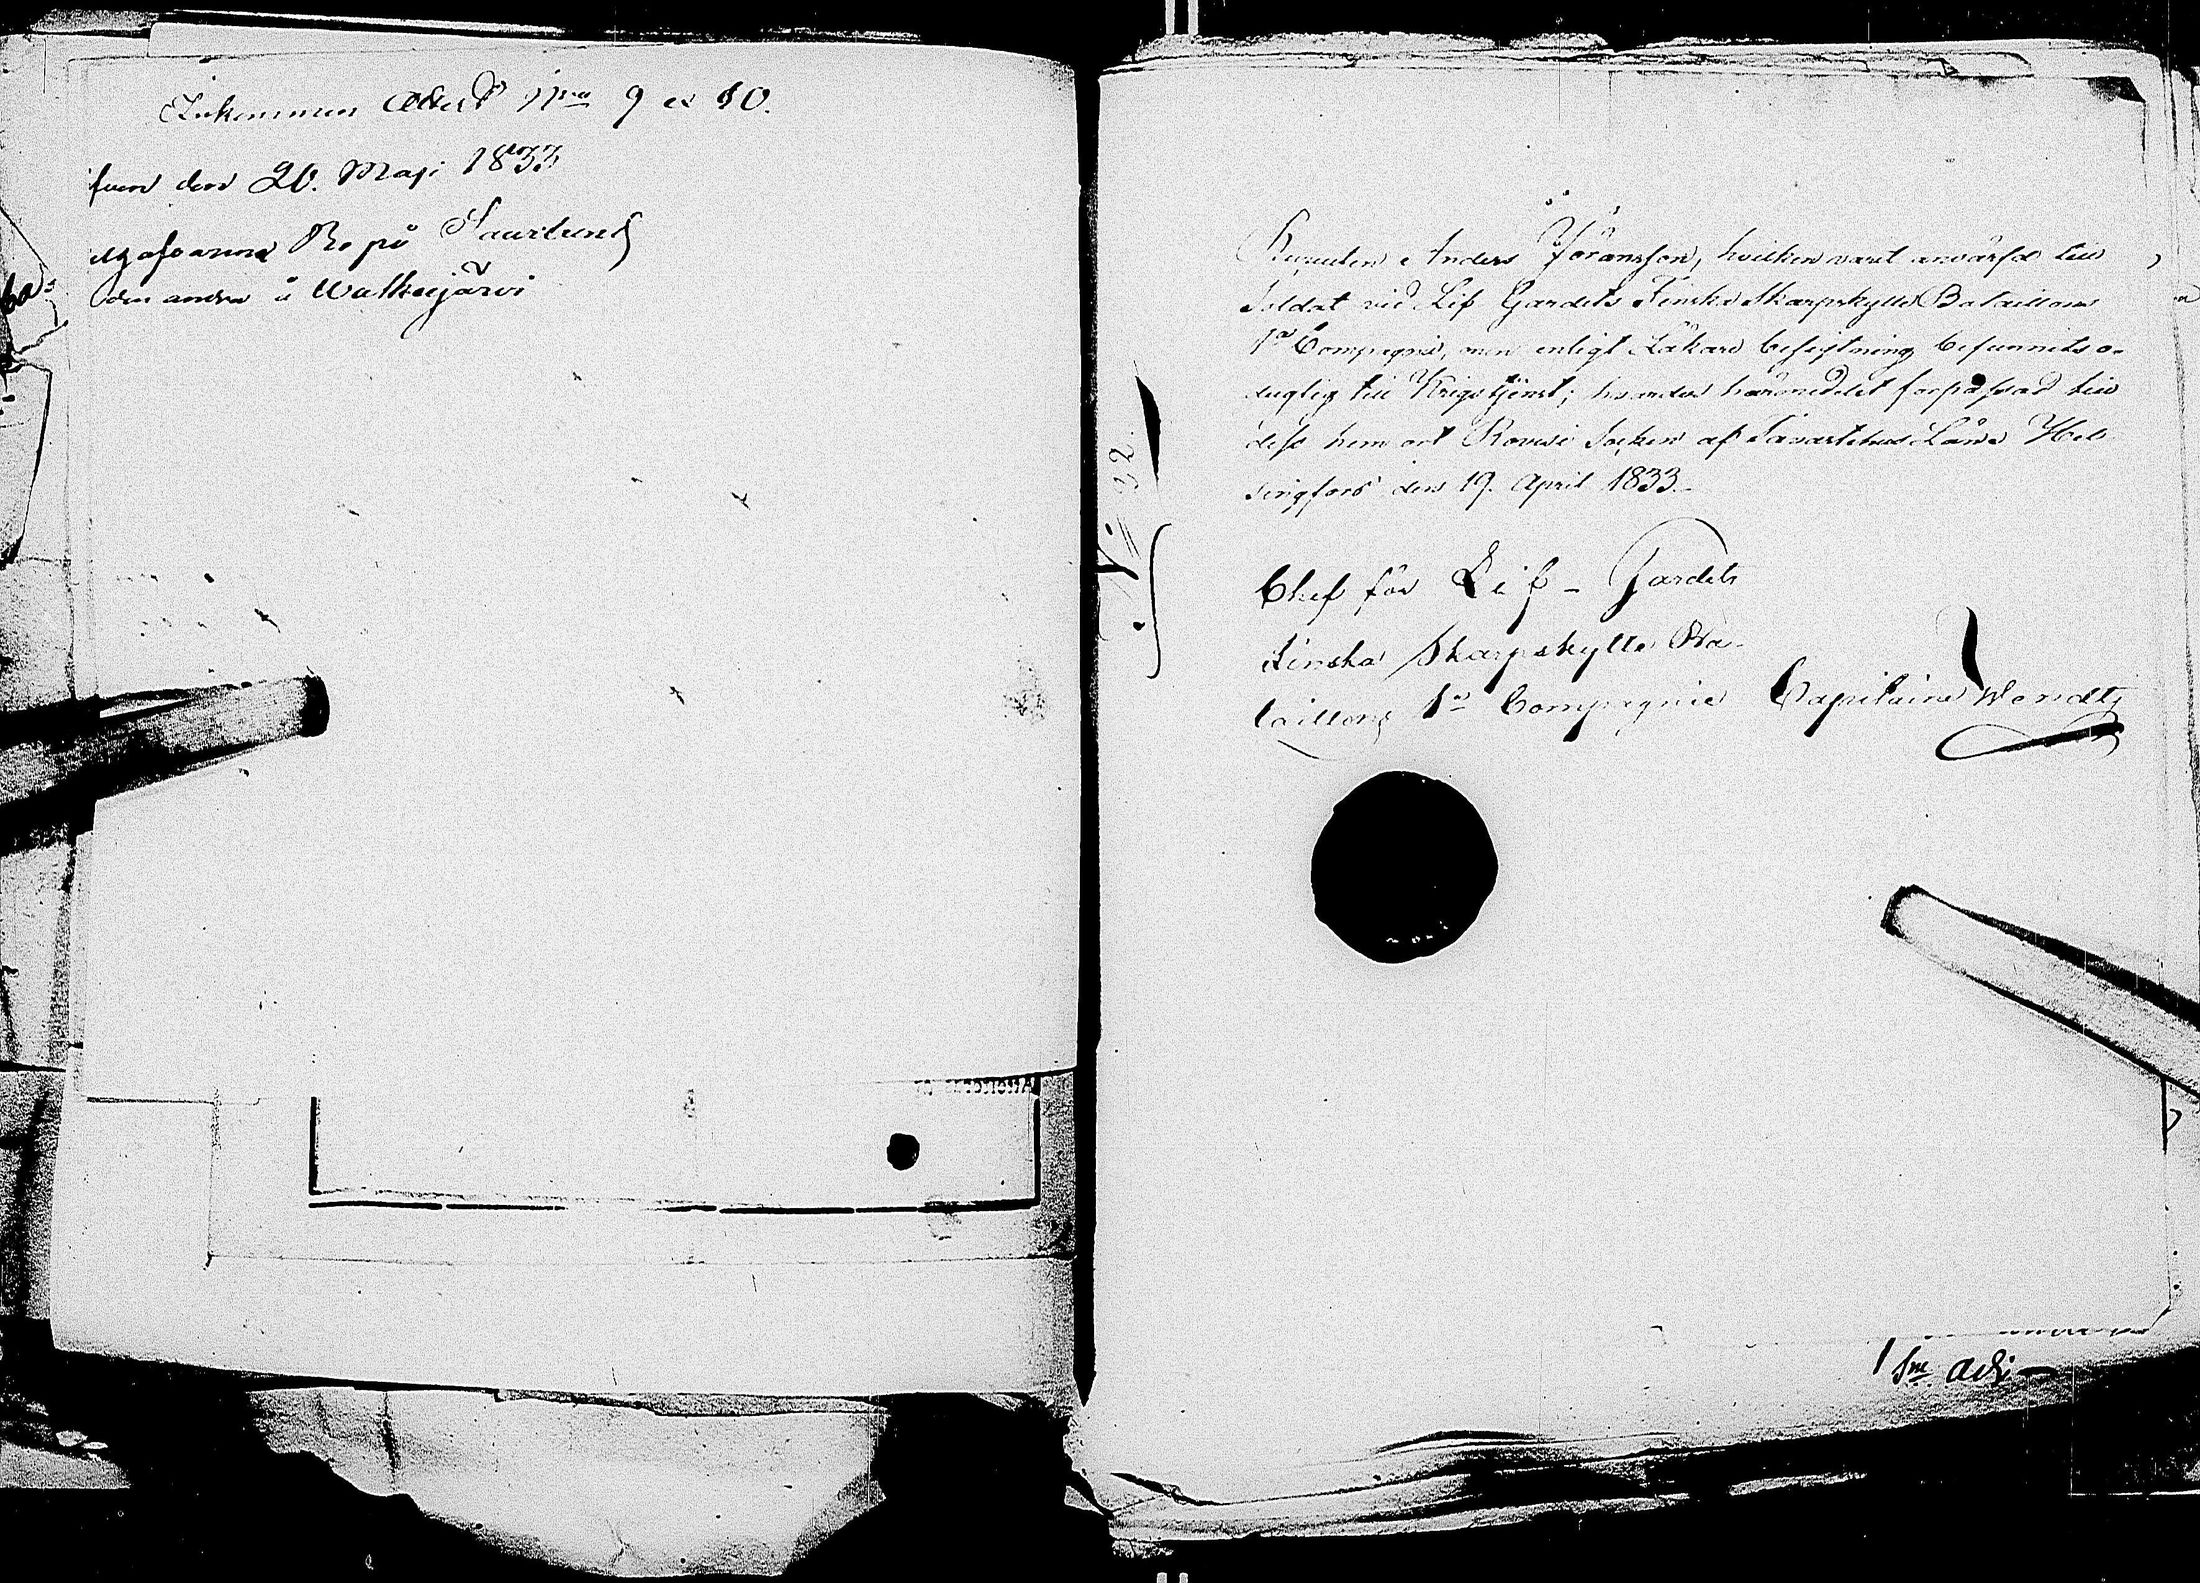 Inkommen Attest Nro 9 et 10.
den 20. Maji 1833
Bo på Saurlund
den andra å Walkeijärvi
N:o 32.
Recruten Anders Jöransson, hvilken varit anvärfd till
Soldat vid Lif Gardets Finska Skarpskytte Bataillons
1a Compagnie, men enligt Läkare besigtning befunnits o-
duglig till Krigstjenst; hvarder härmedelst förpassad till
dess hem ort Rovisi Socken af Tavastehus Län. Hel-
singfors den 19. April 1833.
Chef för Lif-Gardets
Finska Skarpskytte Ba-
taillons 1a Compagnie Capitaine Wendt